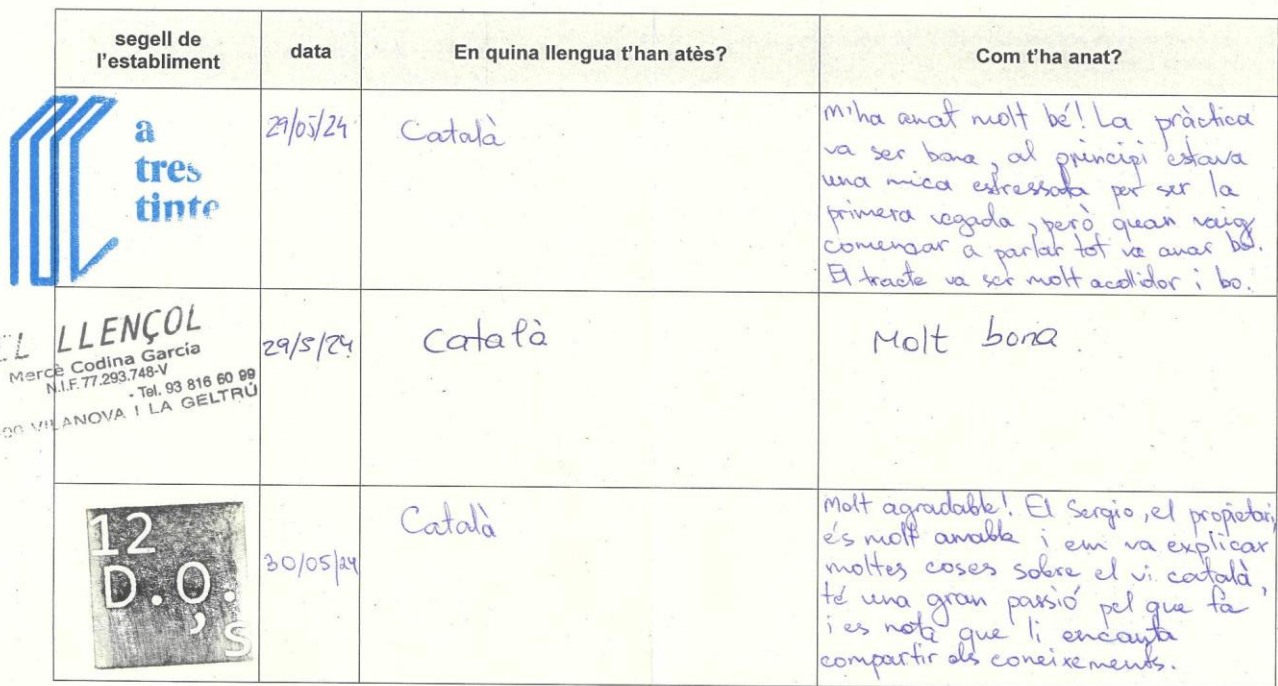 segell de
l'establiment
data
En quina llengua t'han atès?
Com t'ha anat?
a
tres
tinte
29/05/24
Català
M'ha anat molt bé! La pràctica
va ser bona, al principi estava
una mica estressada per ser la
primera vegada, però quan vaig
començar a parlar tot va anar bé.
El tracte va ser molt acollidor i bo.
EL LLENÇOL
Mercè Codina García
N.I.F. 77.293.748-V
- Tel. 93 816 60 99
VILANOVA I LA GELTRÚ
29/5/24
Català
Molt bona
12
D.O.
's
30/05/24
Català
Molt agradable! El Sergio, el propietari,
és molt amable i em va explicar
moltes coses sobre el vi català,
té una gran passió pel que fa
i es nota que li encanta
compartir els coneixements.